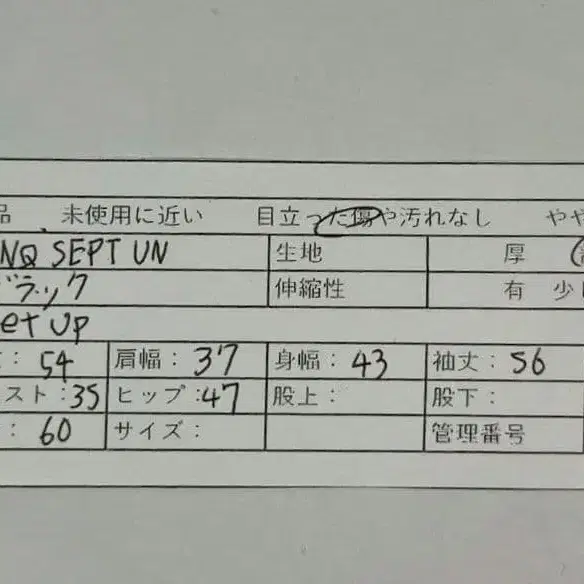 品 未使用に近い 目立った傷や汚れなし やや
NQ SEPT UN 生地 厚
ブラック 伸縮性 有 少し
et up
: 54 肩幅: 37 身幅: 43 袖丈: 56
スト: 35 ヒップ: 47 股上: 股下:
: 60 サイズ: 管理番号